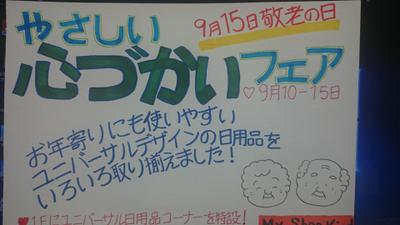 9月15日敬老の日
やさしい
心づかいフェア
♡9月10-15日
お年寄りにも使いやすい
ユニバーサルデザインの日用品を
いろいろ取り揃えました!
♥1Fにユニバーサル日用品コーナーを特設!
My Shop